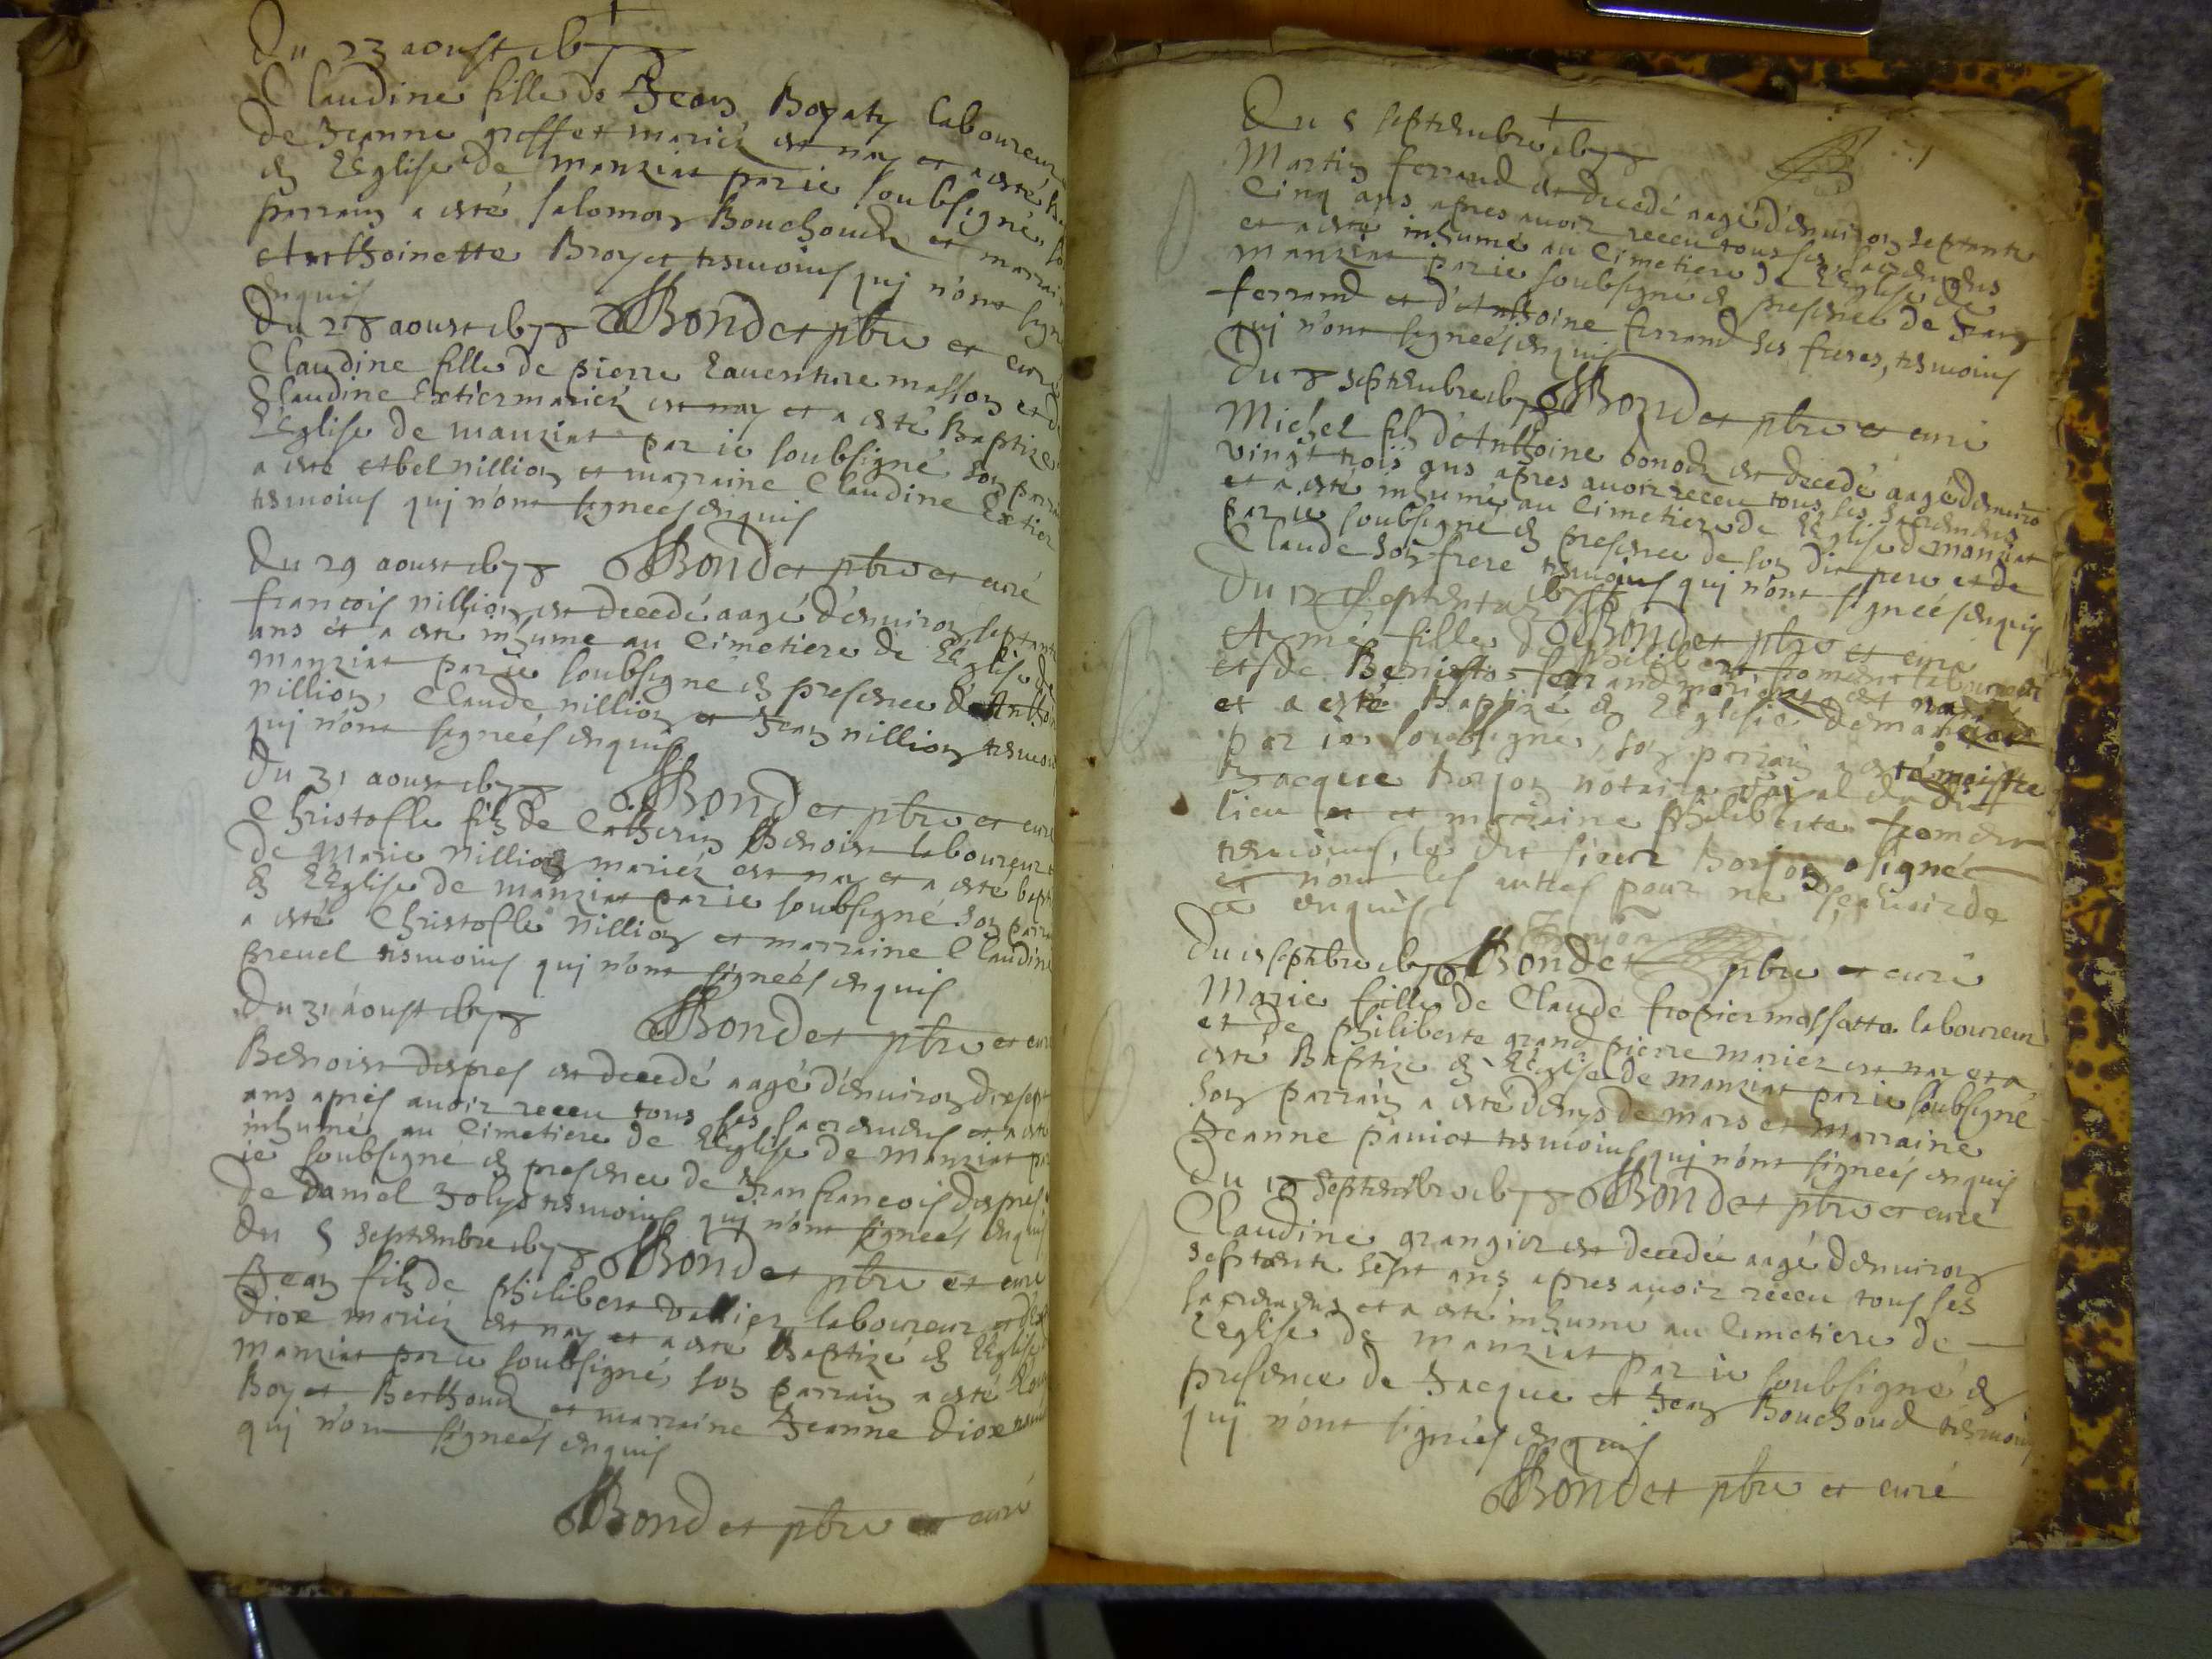 Du 23 aoust 1678
Claudine fille de Jean Boyat laboureur
de Jeanne greffet mariéz est nay et a esté
en lEglise de manziat par ie soubsigné, so
parrain a esté salomon Bouchoud et marrai
Anthoinette Broyet tesmoins qui n'ont sign
enquis
Du 28 aoust 1678 Bondet pbre et curé
Claudine fille de pierre Lauenture masson et de
Claudine Extier mariéz est nay et a esté Baptizé
lEglise de manziat par ie soubsigné son parra
a esté Abel nillion et marraine Claudine Extier
tesmoins qui n'ont signeés enquis
Du 29 aoust 1678 Bondet pbre et curé
francois nillion est decedé aagé d'enuiron septante
ans et a esté inhumé au Cimetiere de lEglise de
manziat par ie soubsigné en presence d'Anthoi
nillion, Claude nillion et Jean nillion tesmoi
qui n'ont signeés enquis
Du 31 aoust 1678 Bondet pbre et curé
Christofle filz de Catherin Benoist laboureur et
de Marie nillion mariéz est nay et a esté bapt
en lEglise de manziat par ie soubsigné son parra
a esté Christofle nillion et marraine Claudine
preuel tesmoins qui n'ont signeés enquis
Du 31 aoust 1678 Bondet pbre et curé
Benoist despres est decedé aagé d'enuiron dix sept
ans apres auoir receu tous ses sacremens et a esté
inhumé au Cimetiere de lEglise de Manziat par
ie soubsigné en presence de Jean francois despres
de Daniel Joly tesmoins qui n'ont signeés enquis
Du 5 septembre 1678 Bondet pbre et curé
Jean filz de philibert vallier laboureur et de
Diox mariéz est nay et a esté Baptizé en lEglise
Manziat par ie soubsigné, son parrain a esté
Boyet Berthoud et marraine Jeanne Diox
qui n'ont signeés enquis
Bondet pbre et curé
Du 5 septembre 1678
Martin ferrand est decedé aagé d'enuiron septante
Cinq ans apres auoir receu tous ses sacremens
et a esté inhumé au Cimetiere de lEglise de
manziat par ie soubsigné en presence de Jean
ferrand et d'Anthoine ferrand ses freres, tesmoins
qui n'ont signeés enquis
Du 8 septembre 1678 Bondet pbre et curé
Michel filz d'Anthoine bonod est decedé aagé d'enuiro
vingt trois ans apres auoir receu tous ses sacremens
et a esté inhumé au Cimetiere de lEglise de manziat
par ie soubsigné en presence de son dit pere et de
Claude son frere tesmoins qui n'ont signeés enquis
Du 12 septembre 1678
Bondet pbre et curé
Aymée fille de philibert froment laboureur
et de Benoiste ferrand mariéz est nay
et a esté Baptizé en lEglise de manziat
par ie soubsigné, son parrain a esté maistre
Jacque Borjon notaire royal du dit
lieu et et marraine philiberte froment
tesmoins, le dit sieur Borjon a signé
et non les autres pour ne sçauoir de
ce enquis
Borjon
Du 15 septebre 1678 Bondet pbre et curé
Marie fille de Claude fropier massatte laboureur
et de philiberte grand pierre mariéz est nay et a
esté Baptizé en lEglise de manziat par ie soubsigné
son parrain a esté denys de mars et marraine
Jeanne paniet tesmoins qui n'ont signeés enquis
Du 18 septembre 1678 Bondet pbre et curé
Claudine grangier est decedée aagé d'enuiron
septante sept ans apres auoir receu tous ses
sacremens et a esté inhumé au Cimetiere de
lEglise de manziat par ie soubsigné en
presence de Jacque et Jean Bouchoud tesmoins
qui n'ont signeés enquis
Bondet pbre et curé